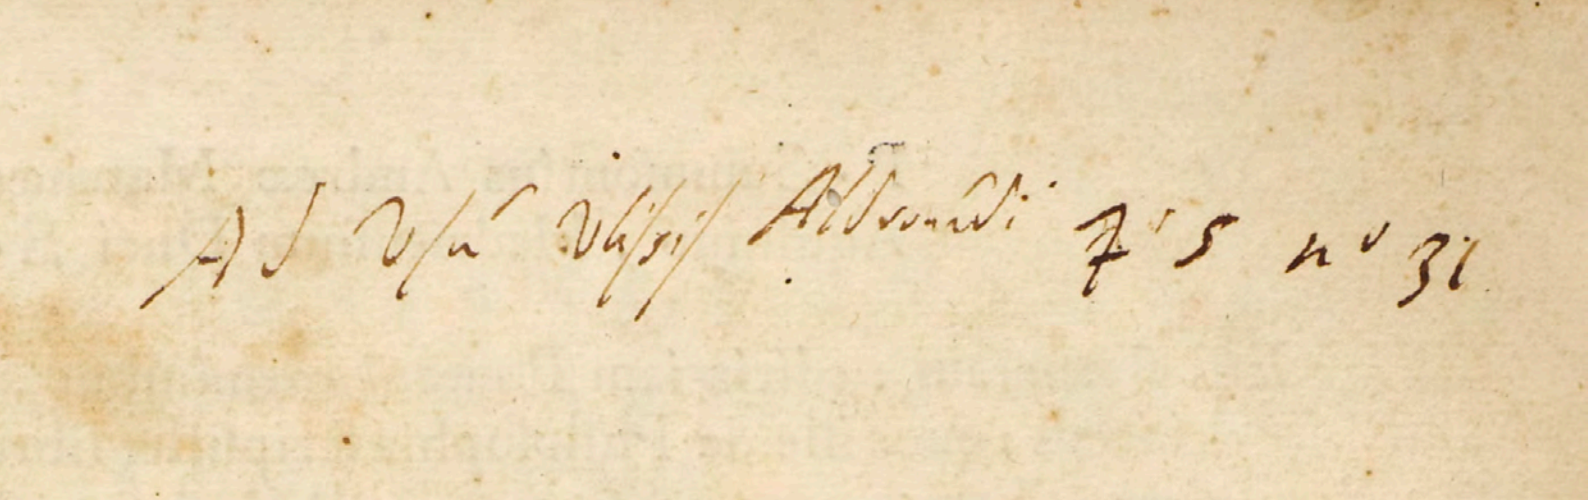 Ad Usū Ulissis Aldrovādi Fº 5 nº 31